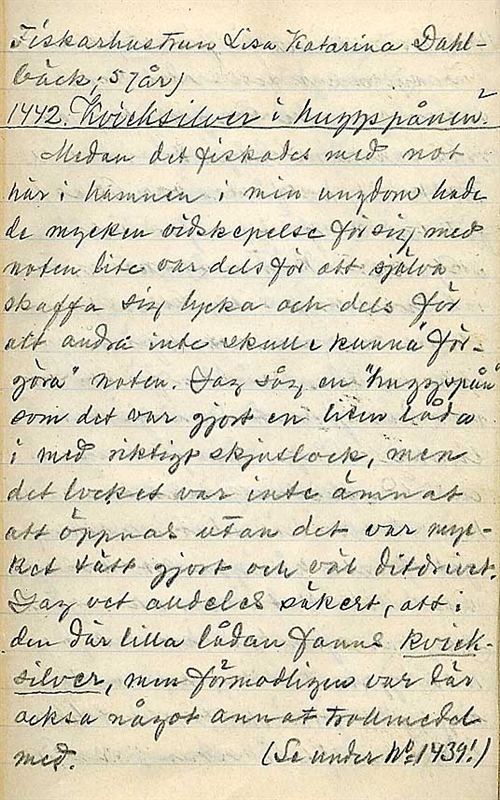 Fiskarhustrun Lisa Katarina Dahl-
bäck, 57 år)
1442. Kvicksilver i huggspånen.
Medan det fiskades med not
här i hamnen i min ungdom hade
de mycken vidskepelse för sig med
noten lite var dels för att själva
skaffa sig lycka och dels för
att andra inte skulle kunna "för-
göra" noten. Jag såg en "huggspån"
som det var gjort en liten låda
i med riktigt skjutlock, men
det locket var inte ämnat
att öppnas utan det var myc-
ket tätt gjort och väl ditdrivet.
Jag vet alldeles säkert, att i
den där lilla lådan fanns kvick-
silver, men förmodligen var där
också något annat trollmedel
med. (Se under No 1439!)